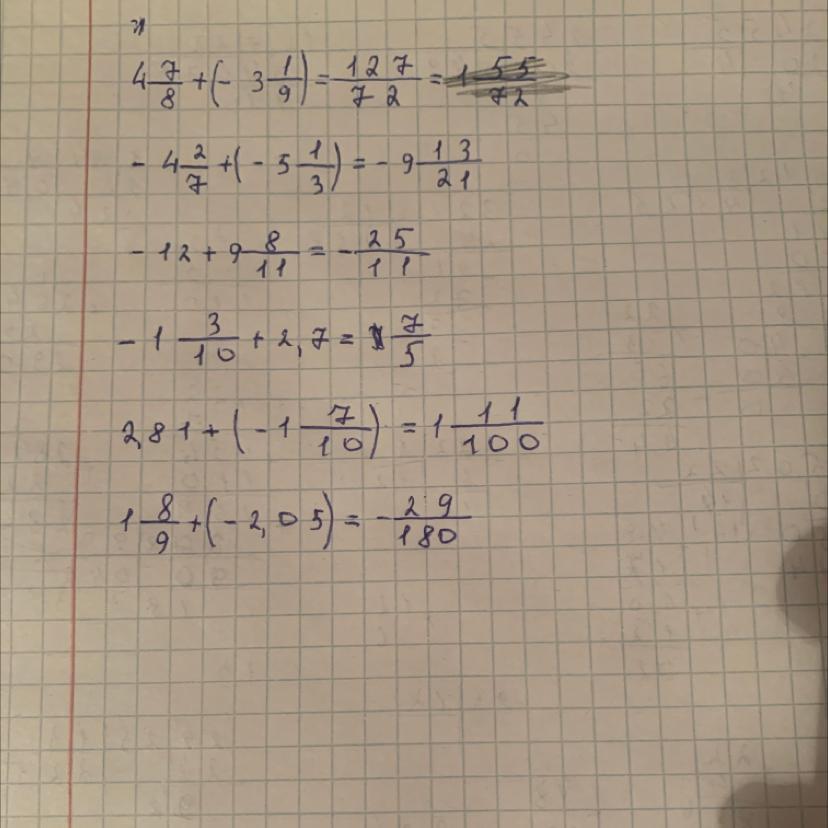 4 7/8 + (- 3 1/9) = 127/72 = 1 55/72
- 4 2/7 + (- 5 1/3) = - 9 13/21
- 12 + 9 8/11 = - 25/11
- 1 3/10 + 2,7 = 7/5
2,81 + (- 1 7/10) = 1 11/100
1 8/9 + (- 2,05) = - 29/180